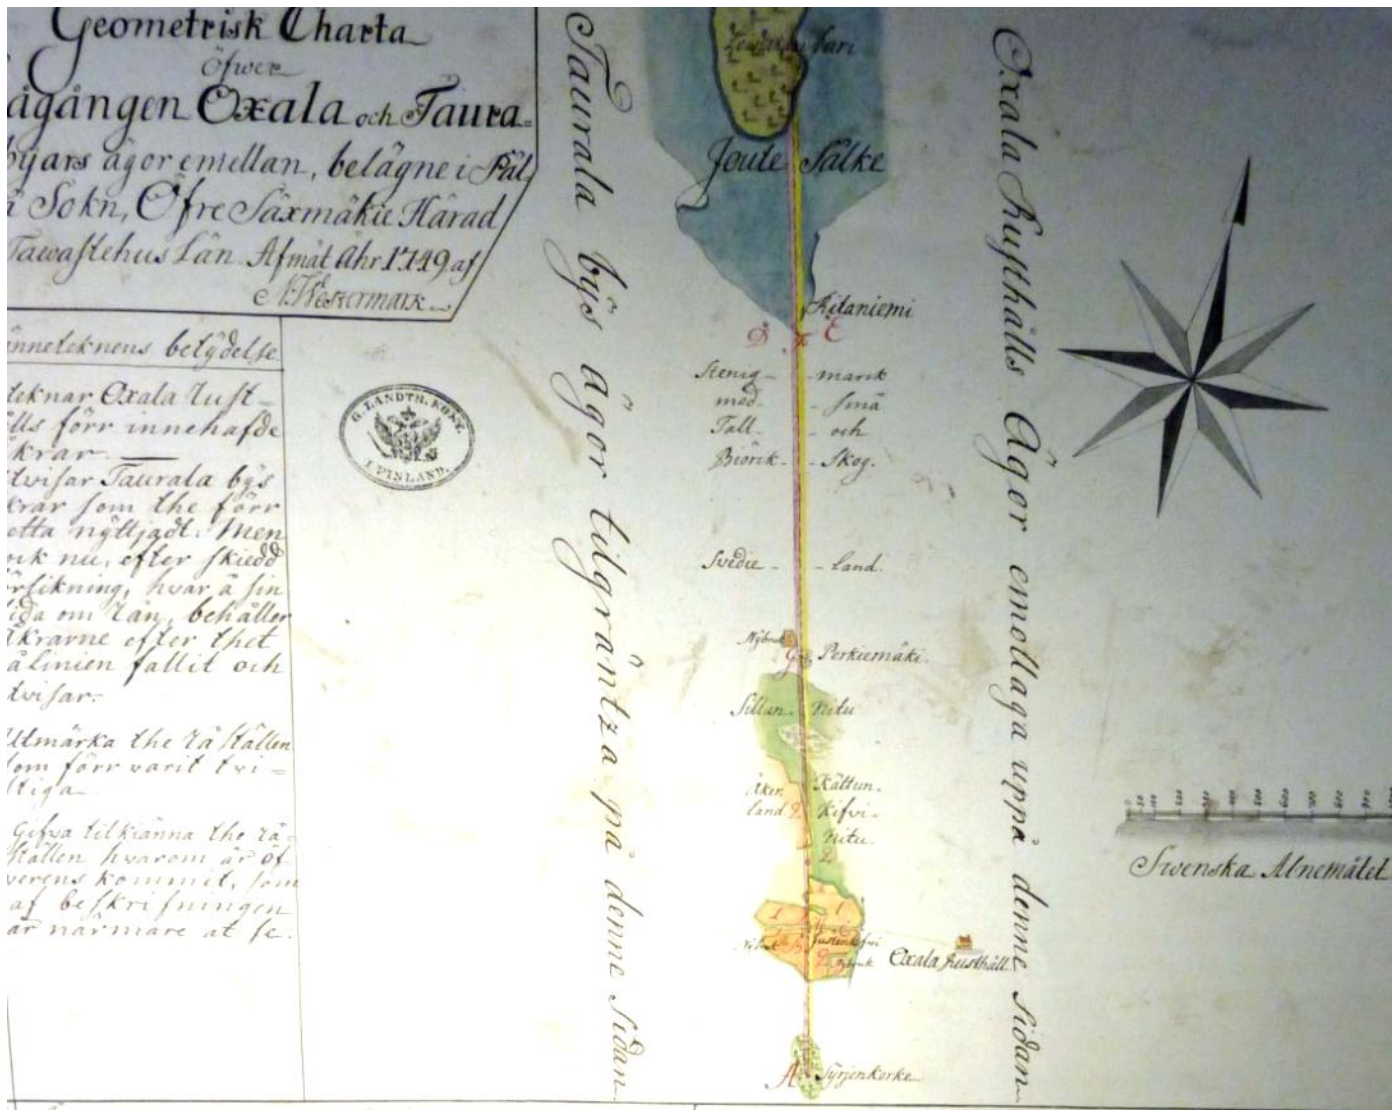 Geometrisk Charta
öfwer
ågången Oxala och Taura=
byars ägor emellan, belägne i Päl
ä Sokn, Öfre Säxmäkie Härad
Tawastehus Län. Afmät Åhr 1749 af
N. Westermark
betydelse
teknar Oxala Rust-
lls förr innehafde
krar
tvisar Taurala bys
krar som the förr
etta nyttjadt. Men
ok nu, efter skiedd
hvar å sin
ida om Rån, behåller
åkrarne efter thet
Rålinien fallit och
tvisar.
Utmärka the Råställen
som förr varit tvi=
stiga
Gifva tilkiänna the Rå-
ställen hvarom är öf-
verens kommit, som
af beskrifningen
är närmare at se.
G. LANDTM. KONT.
I FINLAND.
Taurala bys ägor tilgräntza på denne sidan
saari
Joute Sälke
Aitaniemi
D F E
Stenig- -mark
med- -små
Tall- -och
Biörk- -Skog.
Svedie- -land.
Nybruk
G Perkiemäki.
Sillan- Nitu
Åker Kältun-
land 2 Kifvi-
Nitu
2
1 1
C
Nybruk
2
Oxala Rusthåll
A Syrjenkorke
Oxala Rusthålls Ägor emotlaga uppå denne sidan
Swenska Alnemålet